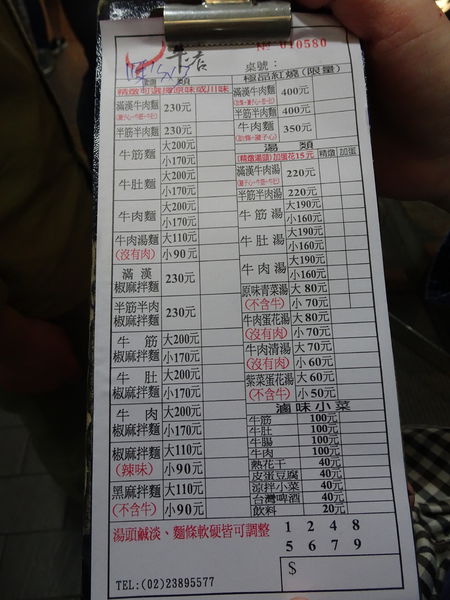 牛店
№ 010580
桌號：
麵 類
精燉可選國原味或川味
滿漢牛肉麵 230元
半筋半肉麵 230元
牛筋麵 大200元
小170元
牛肚麵 大200元
小170元
牛肉麵 大200元
小170元
牛肉湯麵 大110元
(沒有肉) 小90元
滿漢
椒麻拌麵 230元
半筋半肉
椒麻拌麵 230元
牛筋 大200元
椒麻拌麵 小170元
牛肚 大200元
椒麻拌麵 小170元
牛肉 大200元
椒麻拌麵 小170元
椒麻拌麵 大110元
(辣味) 小90元
黑麻拌麵 大110元
(不含牛) 小90元
湯頭鹹淡、麵條軟硬皆可調整
TEL:(02)23895577
極品紅燒(限量)
滿漢牛肉麵 400元
半筋半肉麵 400元
牛肉麵 350元
湯 類
(精燉湯頭)加蛋花15元 精燉 加蛋
滿漢牛肉湯 220元
半筋半肉湯 220元
牛筋湯 大190元
小160元
牛肚湯 大190元
小160元
牛肉湯 大190元
小160元
原味青菜湯 大 80元
(不含牛) 小 70元
牛肉蛋花湯 大 80元
(沒有肉) 小 70元
牛肉清湯 大 70元
(沒有肉) 小 60元
紫菜蛋花湯 大 60元
(不含牛) 小 50元
滷味小菜
牛筋 100元
牛肚 100元
牛腸 100元
牛肉 100元
熱花干 40元
皮蛋豆腐 40元
涼拌小菜 40元
台灣啤酒 40元
飲料 20元
1 2 4 8
5 6 7 9
$